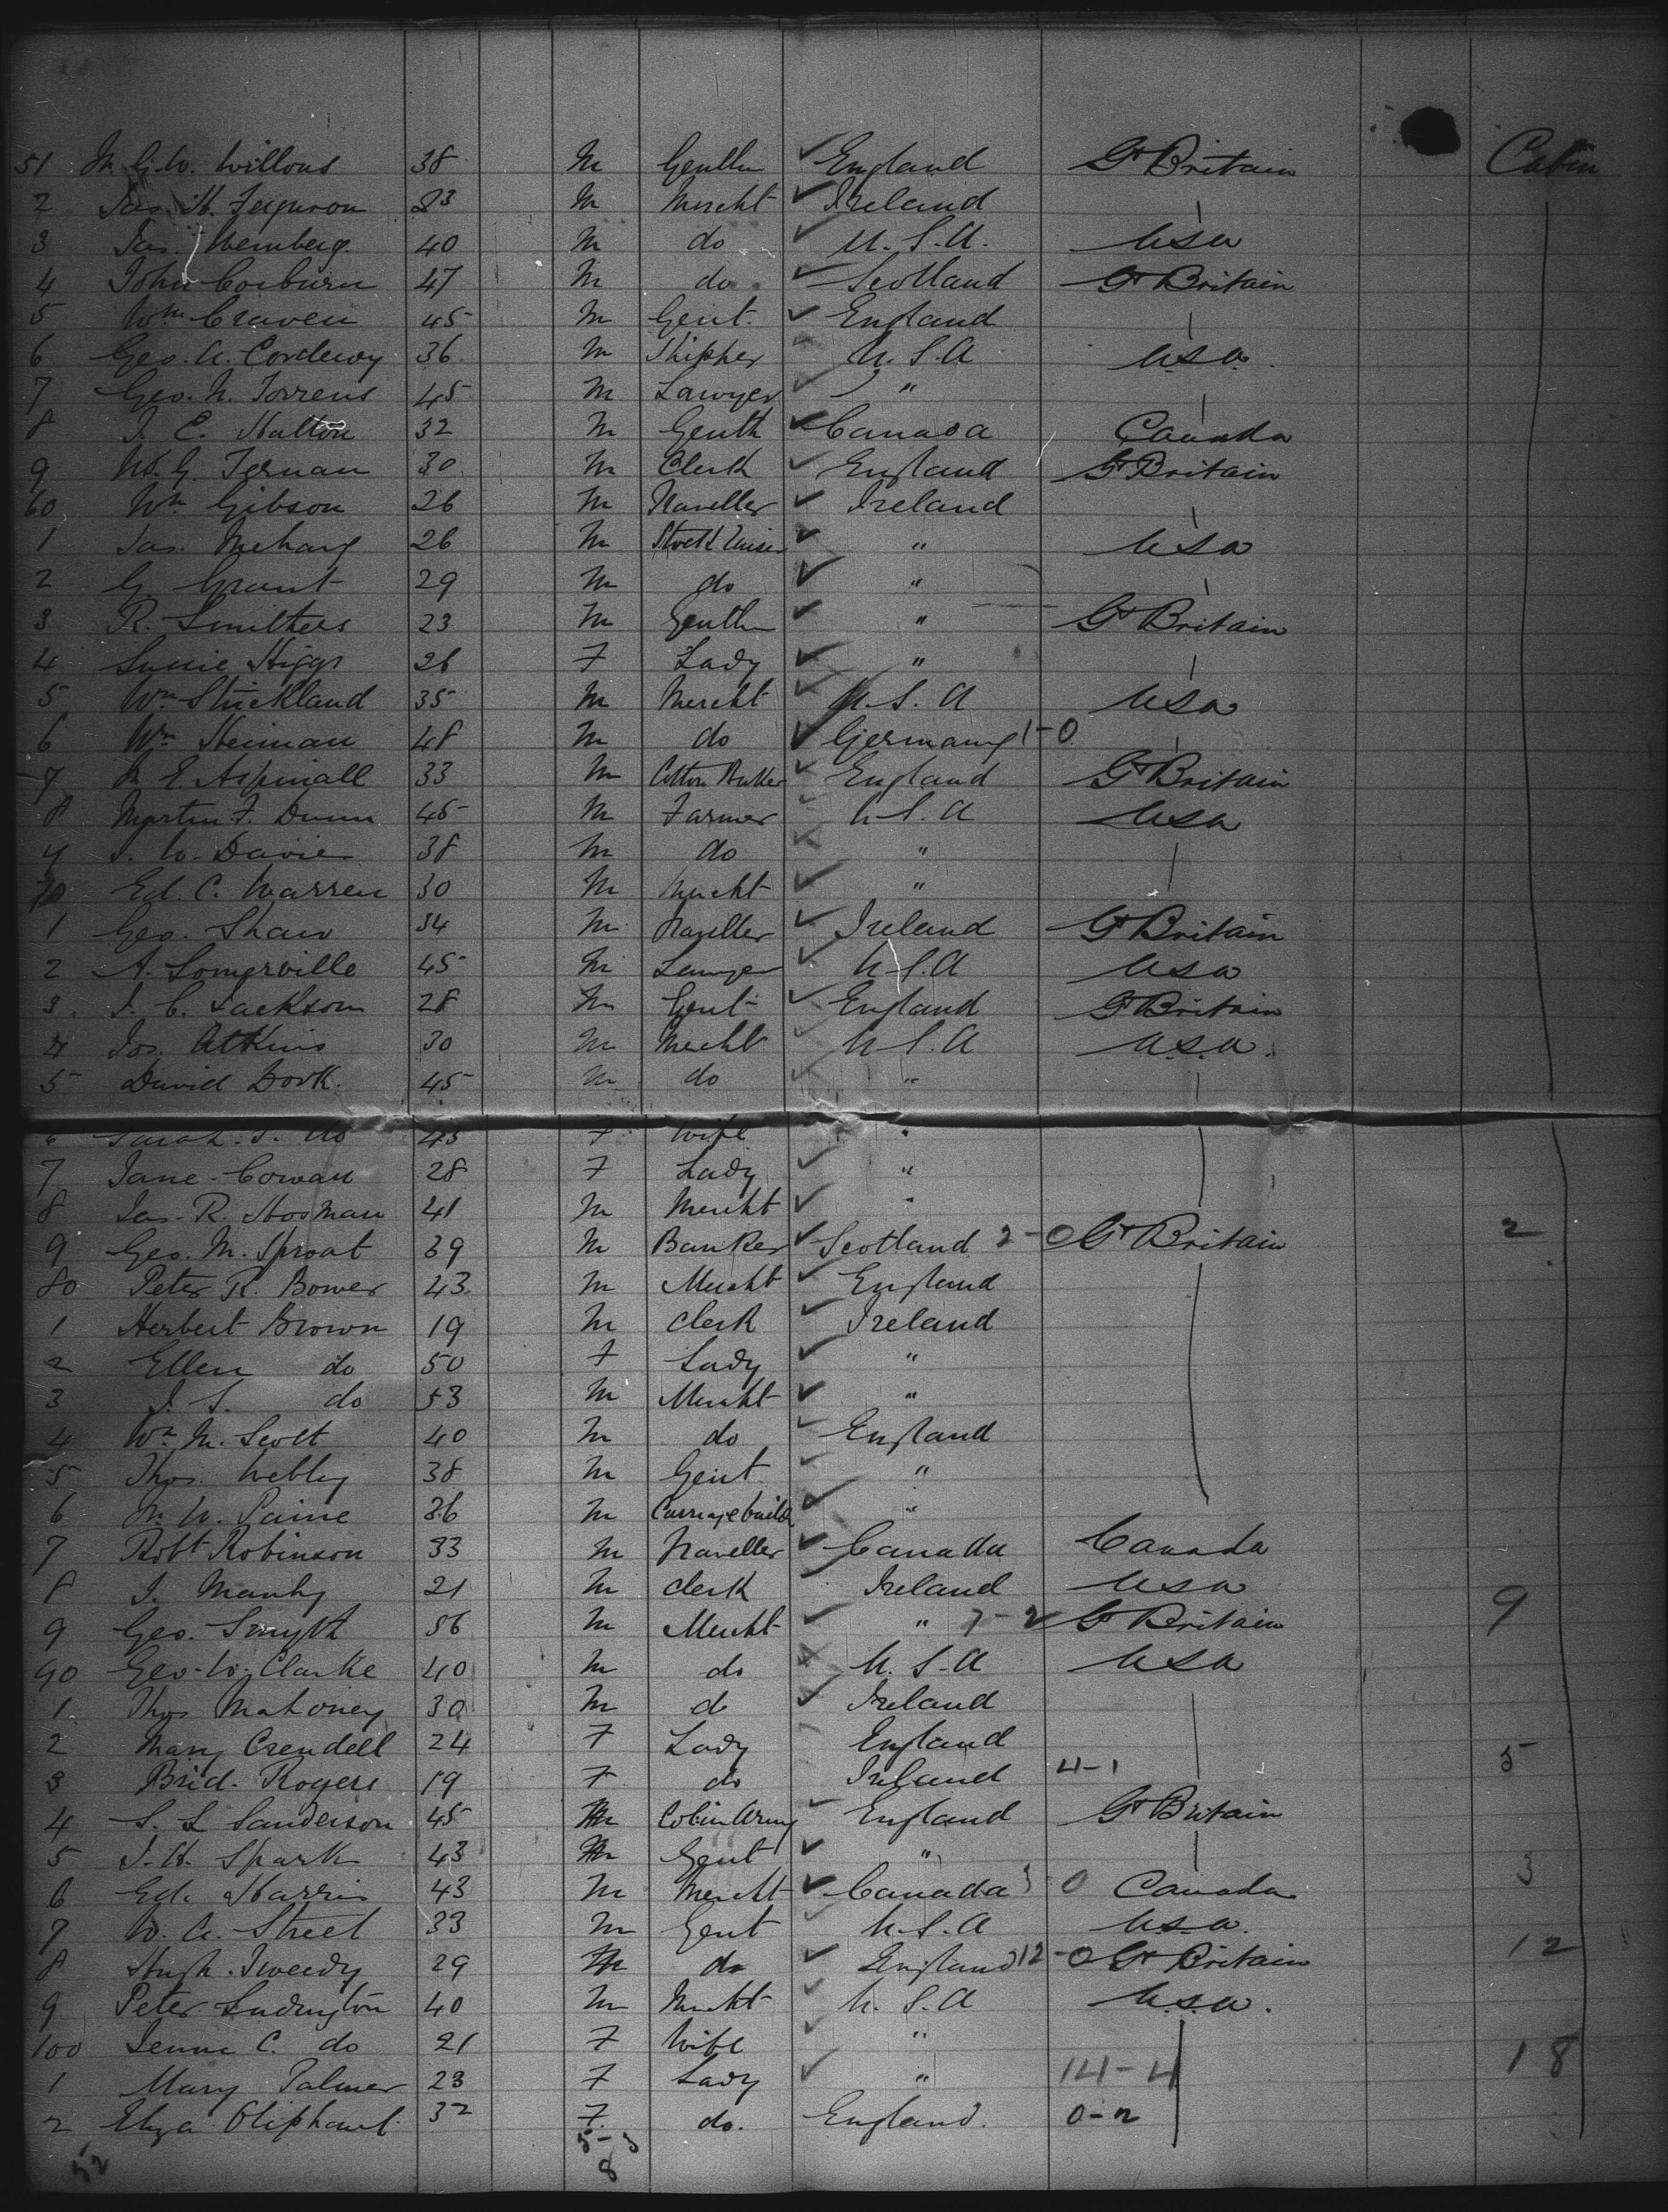 51 M. G. W. Willous 38 M Gentln ✓ England Gt Britain Cabin
2 Jas. H. Ferguson 23 M Mercht ✓ Ireland
3 Jas. Wemberg 40 M do ✓ U.S.A. USA
4 John Corburn 47 M do ✓ Scotland Gt Britain
5 Wm Craven 45 M Gent. ✓ England
6 Geo. A. Cordewy 36 M Skipper ✓ U.S.A USA
7 Geo. N. Torrens 45 M Lawyer ✓ "
8 J. C. Hatton 32 M Gentln ✓ Canada Canada
9 W. G. Ternan 30 M Clerk ✓ England Gt Britain
60 Wm Gibson 26 M Traveller ✓ Ireland
1 Jas. Meharg 26 M Stock raiser ✓ " USA
2 G. Grant 29 M do ✓ "
3 R. Smithers 23 M Gentln ✓ " Gt Britain
4 Sussie Higgs 26 F Lady ✓ "
5 Wm Strickland 35 M Mercht ✓ U.S.A USA
6 Wm Heiman 48 M do ✓ Germany 1-0
7 E. Aspinall 33 M Cotton Broker ✓ England Gt Britain
8 Martin F. Dunn 45 M Farmer ✓ U.S.A USA
9 J. W. Davies 38 M do ✓ "
70 Ed. C. Warren 30 M Mercht ✓ "
1 Geo. Shaw 34 M Traveller ✓ Ireland Gt Britain
2 A. Somerville 45 M Lawyer ✓ U.S.A USA
3 J. C. Jackson 28 M Gent ✓ England Gt Britain
4 Jos. Atkins 30 M Mercht ✓ U.S.A U.S.A.
5 David Dork 45 M do ✓ "
6 Sarah. J. do 43 F Wife "
7 Jane Cowan 28 F Lady ✓ "
8 Jas. R. Hosman 41 M Mercht ✓ "
9 Geo. M. Sproat 39 M Banker ✓ Scotland 2-0 Gt Britain 2
80 Peter R. Bower 43 M Mercht ✓ England
1 Herbert Brown 19 M Clerk ✓ Ireland
2 Ellen do 50 F Lady ✓ "
3 J. S. do 53 M Mercht ✓ "
4 Wm M. Scott 40 M do ✓ England
5 Thos. Webley 38 M Gent ✓ "
6 W. Paine 36 M Carriage builder ✓ "
7 Robt Robinson 33 M Traveller ✓ Canada Canada
8 J. Manhy 21 M Clerk Ireland USA
9 Geo. Smyth 36 M Mercht ✓ " 7-2 Gt Britain 9
90 Geo. W. Clarke 40 M do U.S.A USA
1 Thos Mahoney 30 M do ✓ Ireland
2 Mary Crendell 24 F Lady England
3 Brid. Rogers 19 F do Ireland 4-1 5
4 S. L. Sanderson 45 M Army ✓ England Gt Britain
5 J. H. Spark 43 M Gent ✓ "
6 Ed. Harris 43 M Mercht ✓ Canada 3 0 Canada 3
7 W. A. Street 33 M Gent ✓ U.S.A U.S.A.
8 Hugh Tweedy 29 M do ✓ England 12-0 Gt Britain 12
9 Peter Ludington 40 M Mercht ✓ U.S.A U.S.A.
100 Jenne C. do 21 F Wife ✓ "
1 Mary Palmer 23 F Lady ✓ " 14-4 18
2 Eliza Oliphant 32 F do. England. 0-2
52 5-3
8